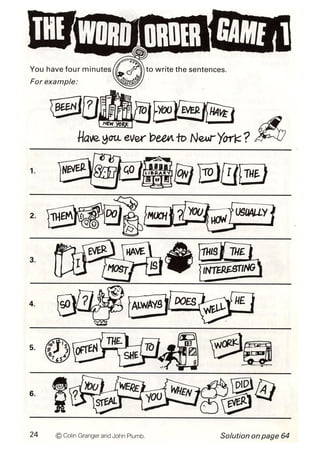 THE WORD ORDER GAME 1
You have four minutes to write the sentences.
For example:
BEEN ? NEW YORK TO YOU EVER HAVE
Have you ever been to New York?
1. NEVER SAT GO LIBRARY ON TO I THE
2. THEM DO MUCH ? YOU HOW USUALLY
3. I EVER MOST HAVE IS THIS THE INTERESTING
4. SO ? ALWAYS DOES WELL HE
5. OFTEN THE SHE TO WORK
6. ? YOU STEAL WERE YOU WHEN EVER DID A
24 © Colin Granger and John Plumb. Solution on page 64